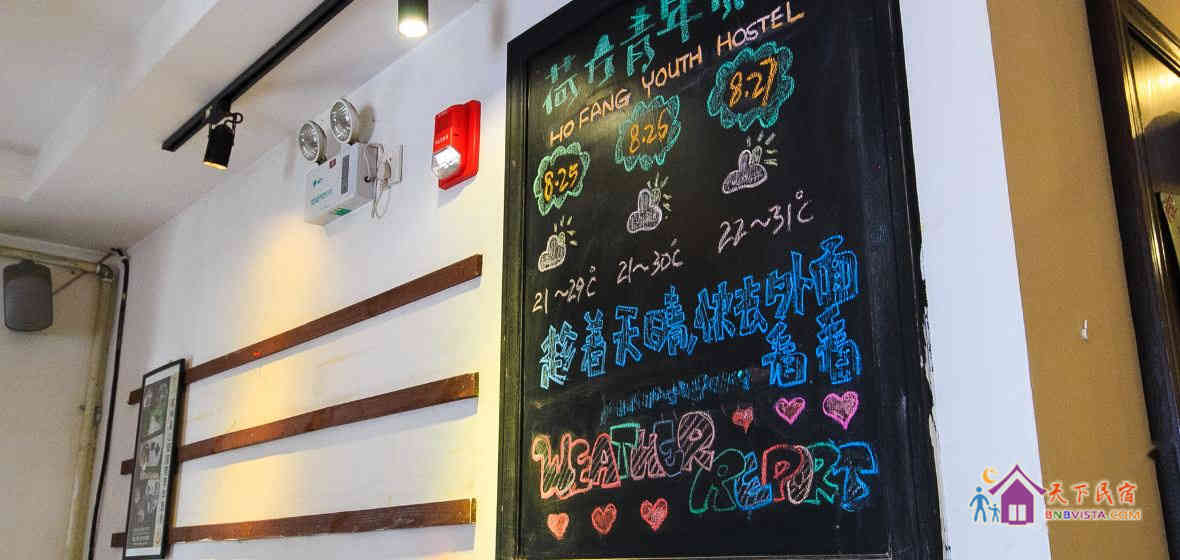 荷方青年
HO FANG YOUTH HOSTEL
8.25 8.26 8.27
21~29℃ 21~30℃ 22~31℃
趁着天晴,快去外面
看看
WEATHER
REPORT
天下民宿
BNBVISTA.COM